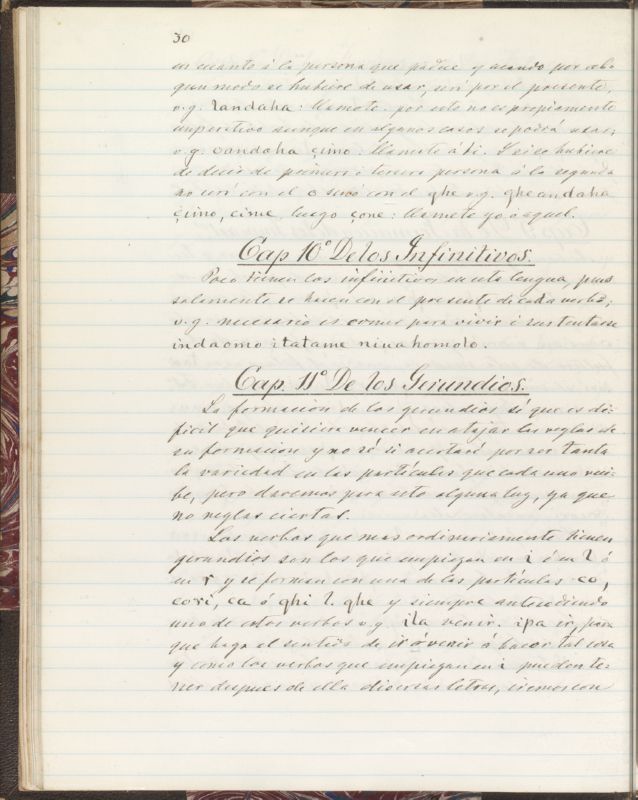 30
en cuanto á la persona que padece y acaudo por cola
quier modo se hubiere de usar, será por el presente,
v.g. landaha: llamote. por esto no es propiamente
imperativo aunque en algunos casos se podrá usar;
v.g. candaha çimo: llámente á ti. Y si se hubiere
de decir de primera ó tercera persona á la segunda
no será con el o será con el ghe v.g. ghe andaha
çimo, cime, luego çone: llamete yo ó aquel.
Cap 10º De los Infinitivos.
Poco tienen los infinitivos en esta lengua, pues
solamente se hacen con el presente de cada verbo;
v.g. necesario es comer para vivir ó sustentarse
indaomo itatame niuahomolo.
Cap. 11º De los Gerundios.
La formacion de los gerundios sé que es di-
ficil que quisiera vencer en atajar las reglas de
su formacion y no sé si acertaré por ser tanta
la variedad en las partículas que cada uno reci-
be, pero daremos para esto alguna luz, ya que
no reglas ciertas.
Los verbos que mas ordinariamente tienen
gerundios son los que empiezan en i ó en l ó
en r y se forman con una de las partículas co,
cori, ca ó ghi l. ghe y siempre antecediendo
uno de estos verbos v.g. ila venir. ipa ir, para
que haga el sentido de ir ó venir á hacer tal cosa
y como los verbos que empiezan en i pueden te-
ner despues de ella diversas letras, iremos con